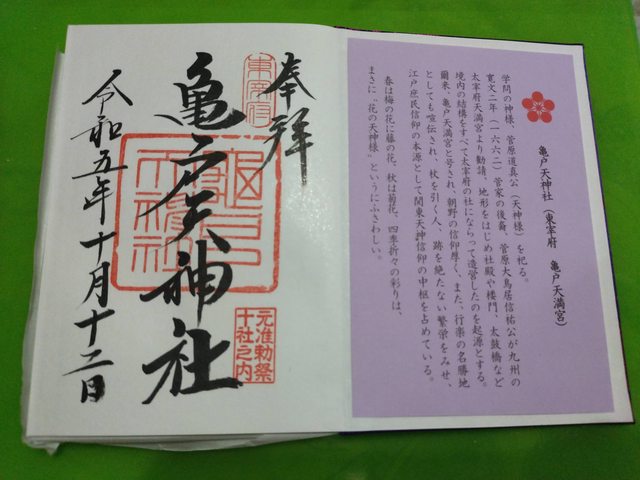 亀戸天神社（東宰府　亀戸天満宮）
学問の神様、菅原道真公（天神様）を祀る。
寛文二年（一六六二）菅家の後裔、菅原大鳥居信祐公が九州の
太宰府天満宮より勧請、地形をはじめ社殿や楼門、太鼓橋など
境内の結構をすべて太宰府の社にならって造営したのを起源とする。
爾来、亀戸天満宮と号され、朝野の信仰厚く、また、行楽の名勝地
としても喧伝され、杖を引く人、跡を絶たない繁栄をみせ、
江戸庶民信仰の本源として関東天神信仰の中枢を占めている。
春は梅の花に藤の花、秋は菊花、四季折々の彩りは、
まさに〝花の天神様〟というにふさわしい。
奉拝
東宰府
亀戸天神社
亀戸
天神社
元准勅祭
十社之内
令和五年十月十二日